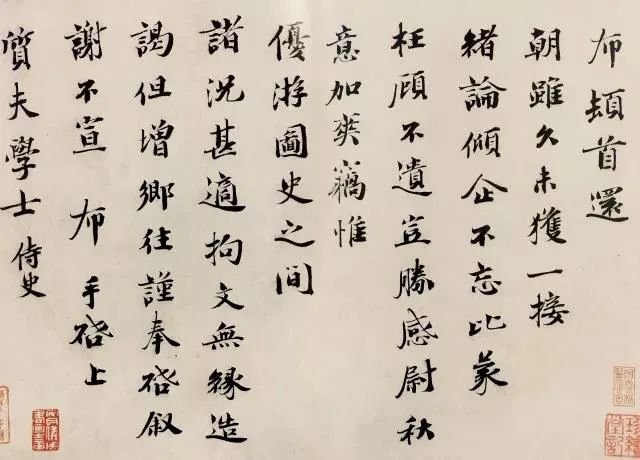 布頓首還
朝雖久未獲一接
緒論傾企不忘比蒙
枉顧不遺豈勝感尉秋
意加爽竊惟
優游圖史之間
諸況甚適拘文無緣造
謁但增鄉往謹奉啓敘
謝不宣 布 手啓上
質夫學士 侍史